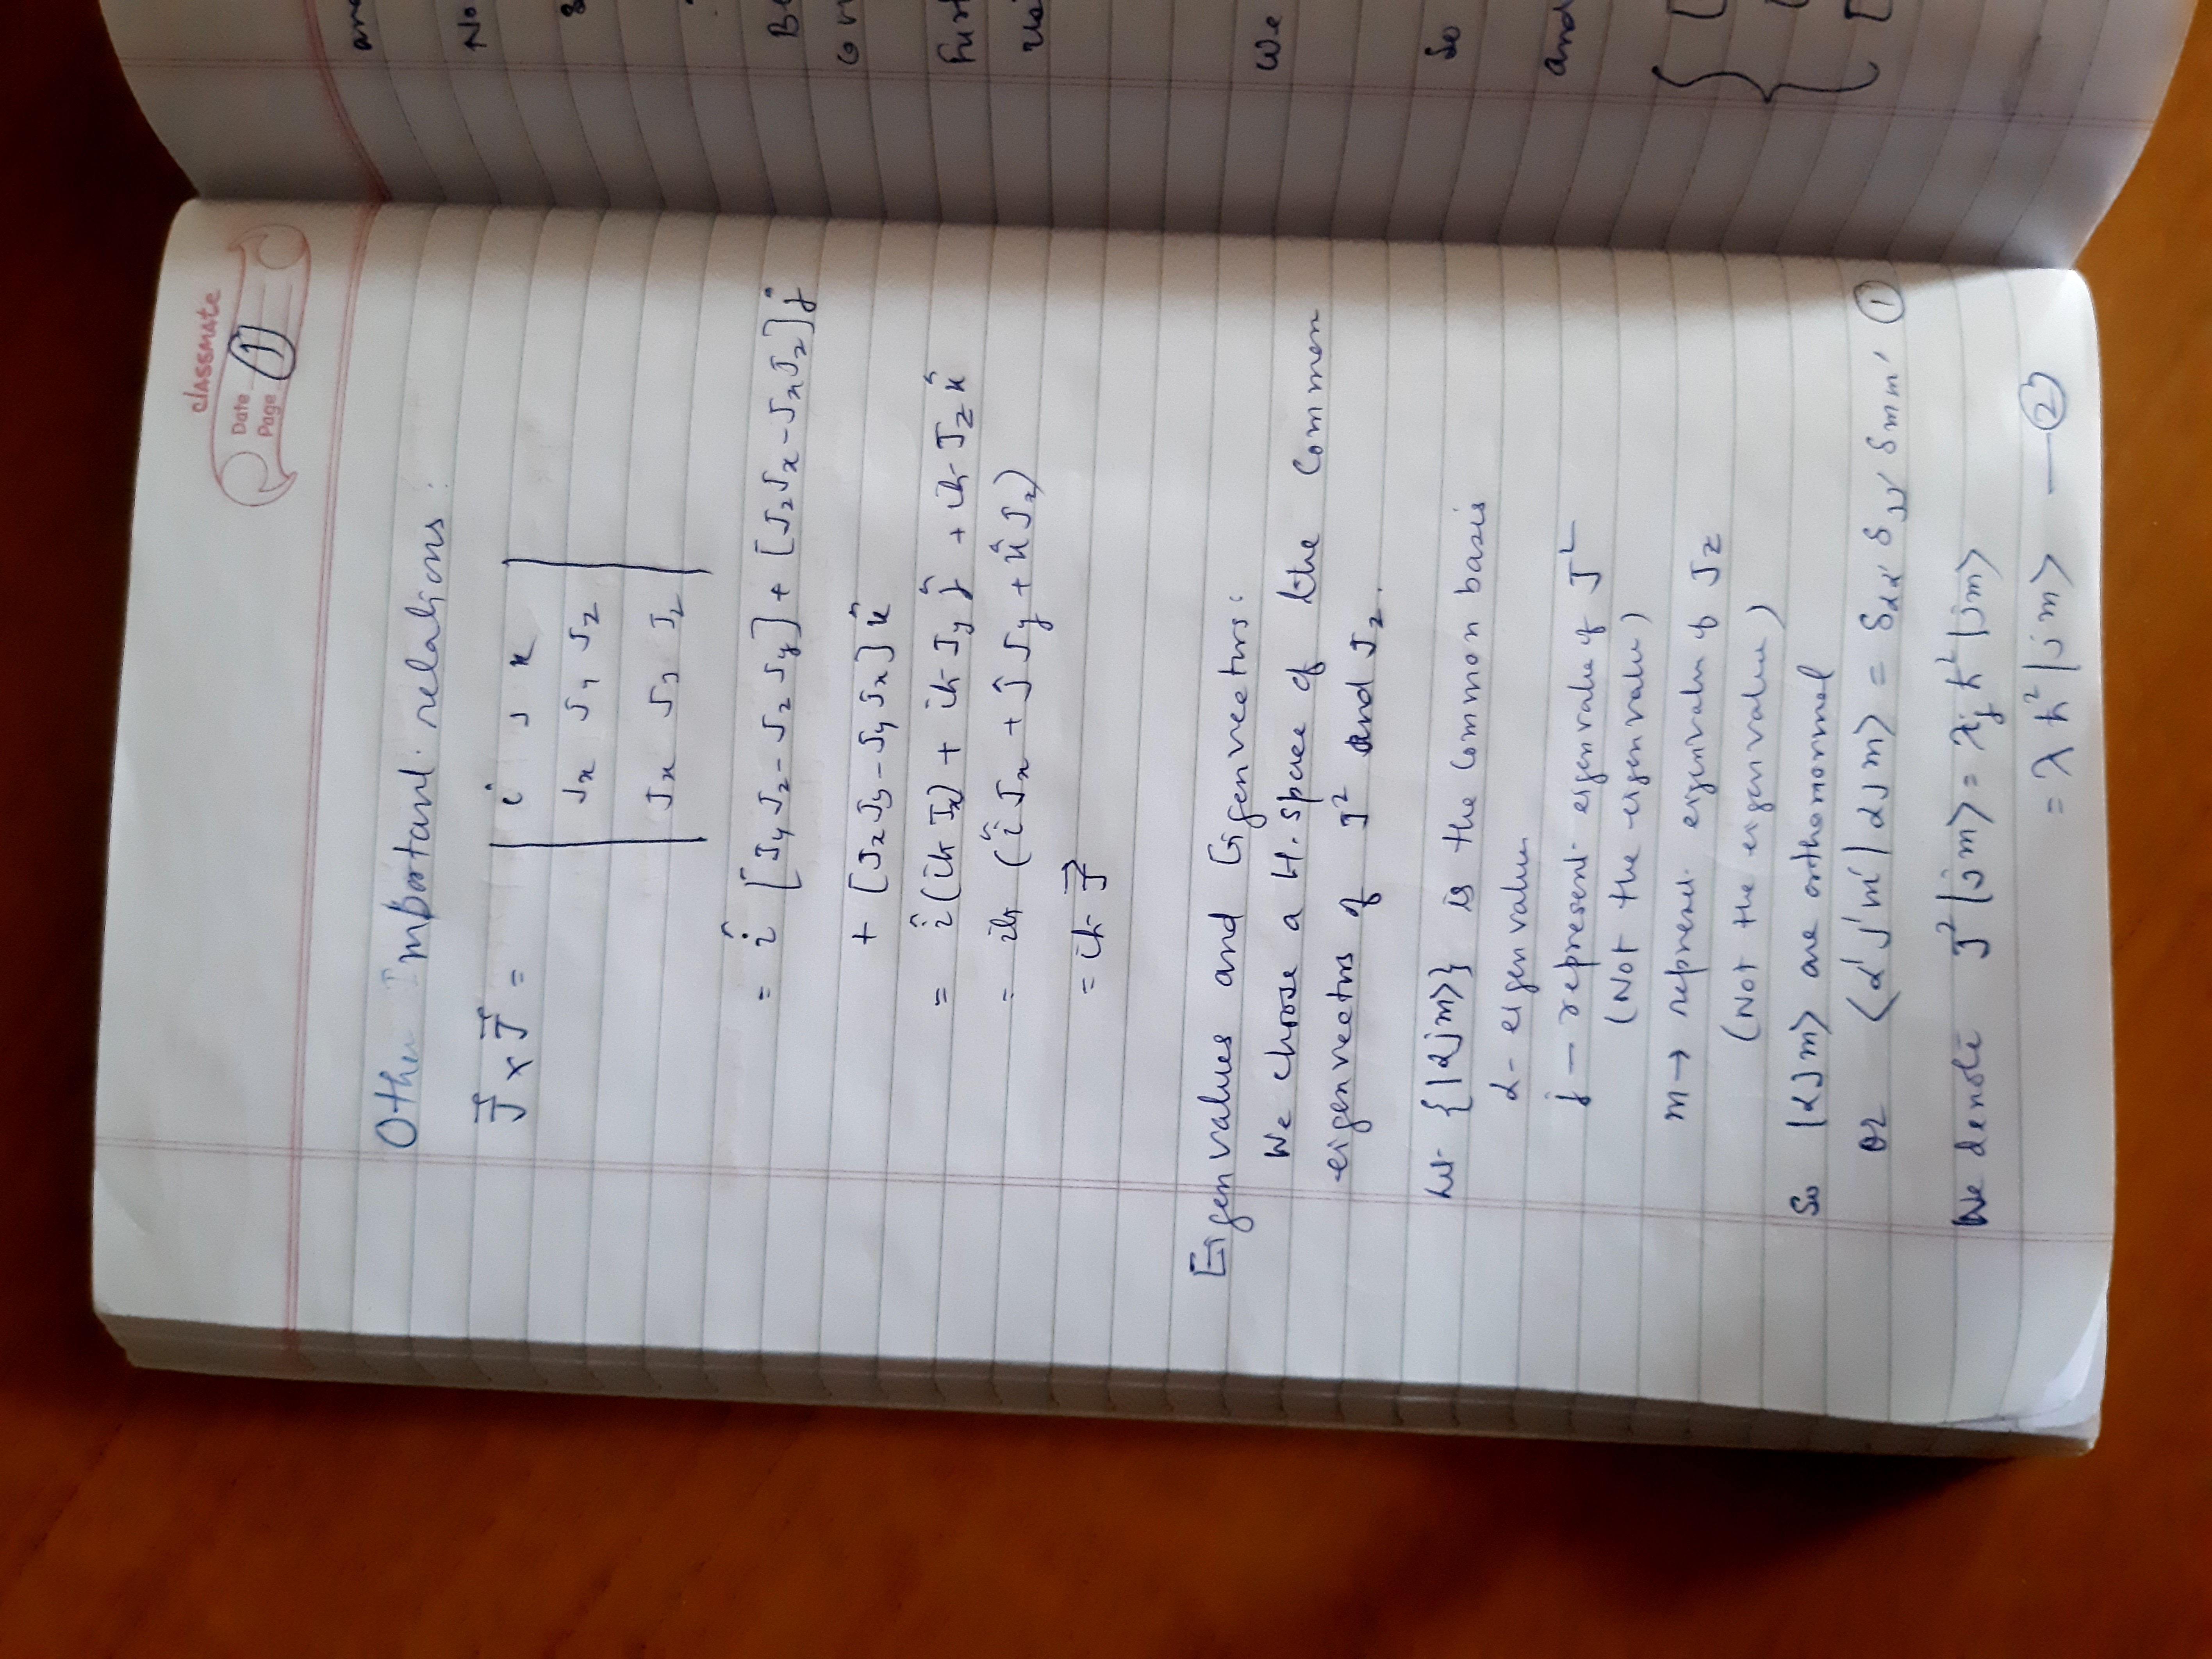 classmate
Date
Page 1
Other Important relations:
J⃗ × J⃗ = | i j k |
| Jx Jy Jz |
| Jx Jy Jz |
= î [JyJz - JzJy] + [JzJx - JxJz] ĵ
+ [JxJy - JyJx] k̂
= î(iħJx) + iħJy ĵ + iħJz k̂
= iħ (îJx + ĵJy + k̂Jz)
= iħ J⃗
Eigenvalues and Eigenvectors:
We choose a H. space of the Common
eigenvectors of J² and Jz.
Let {|αjm⟩} is the Common basis
α - eigenvalue
j — represent eigenvalue of J²
(Not the eigenvalue)
m → represent eigenvalue of Jz
(Not the eigenvalue)
So |αjm⟩ are orthonormal
or ⟨α'j'm'|αjm⟩ = δαα' δjj' δmm' ①
We denote J²|jm⟩ = λj ħ²|jm⟩
= λħ²|jm⟩ — ②
and
No
Fur
We
So
and